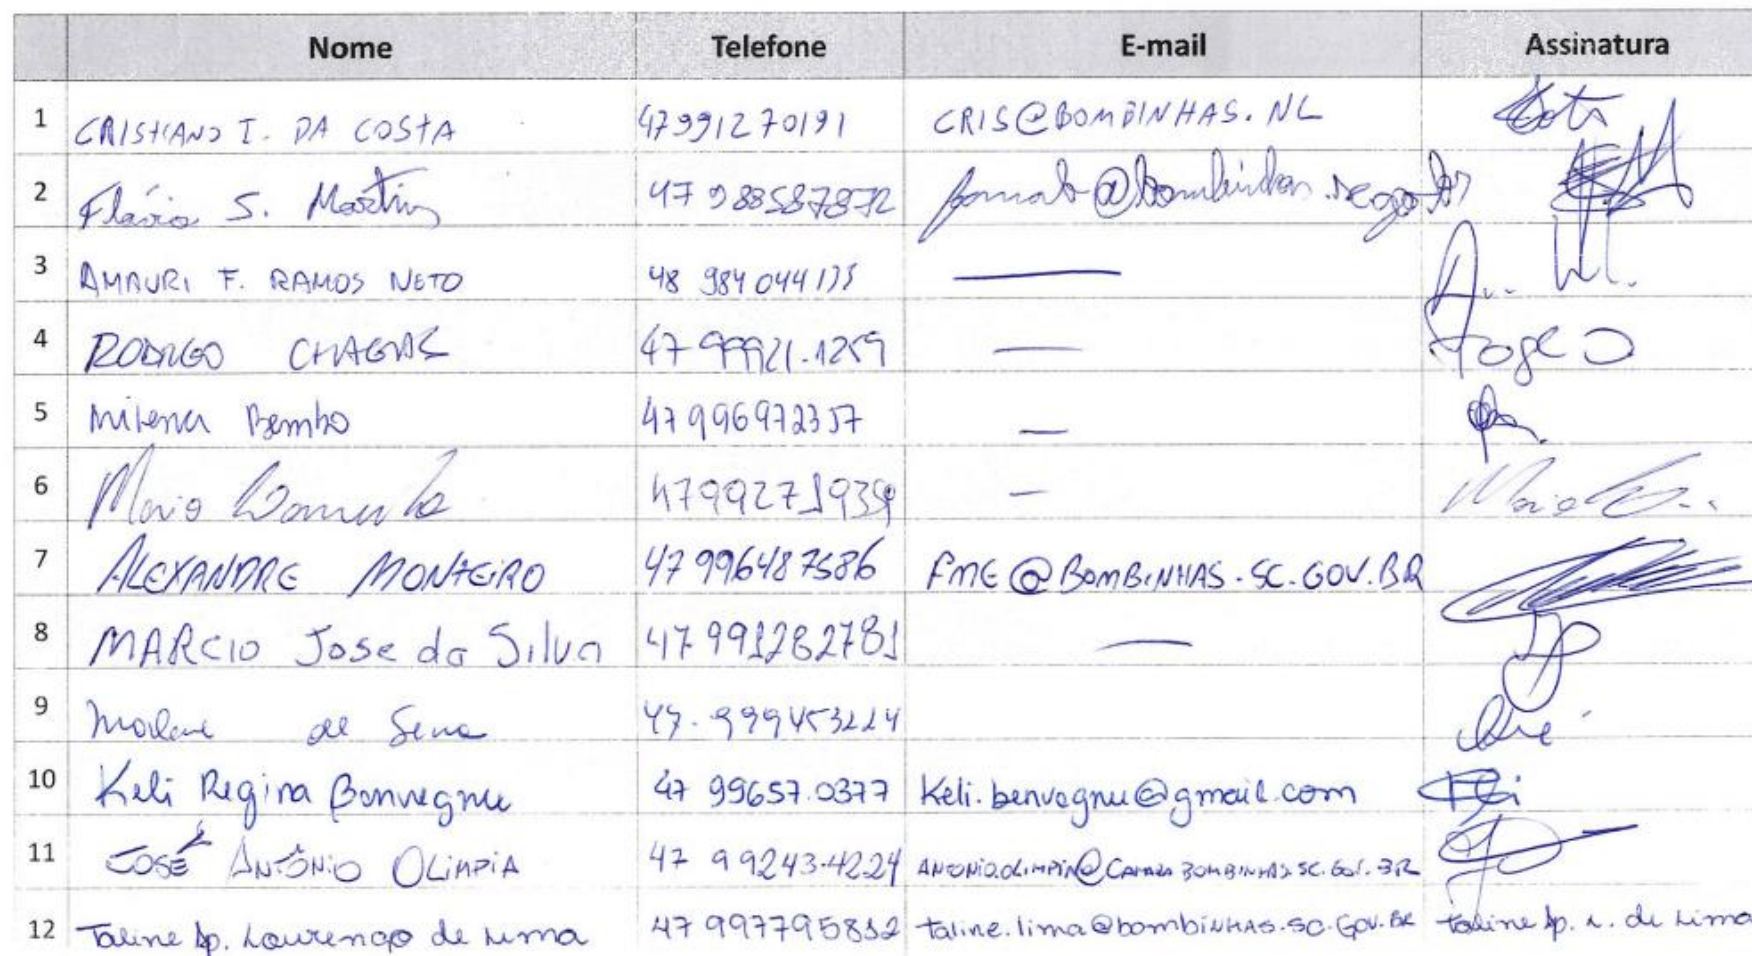 Nome Telefone E-mail Assinatura
1 CRISTIANO I. DA COSTA 47991270191 CRIS@BOMBINHAS.NL
2 Flávio S. Martins 47 988587872 @bombinhas.sc.gov.br
3 AMAURI F. RAMOS NETO 48 984044135 —
4 RODRIGO CHAGAS 47 99921.1259 —
5 Milena Bembo 47 996972357 —
6 Mario 47992719359 —
7 ALEXANDRE MONTEIRO 47 996487586 FME@BOMBINHAS.SC.GOV.BR
8 MARCIO Jose da Silva 47 991282781 —
9 Marlene de Sena 47.999453224
10 Keli Regina Benvegnu 47 99657.0377 Keli.benvegnu@gmail.com
11 JOSÉ ANTÔNIO OLIMPIA 47 99243-4224 ANTONIO.OLIMPIA@CAMARABOMBINHAS.SC.GOV.BR
12 Taline Ap. Lourenço de Lima 47 997795832 taline.lima@bombinhas.sc.gov.BR Taline Ap. L. de Lima